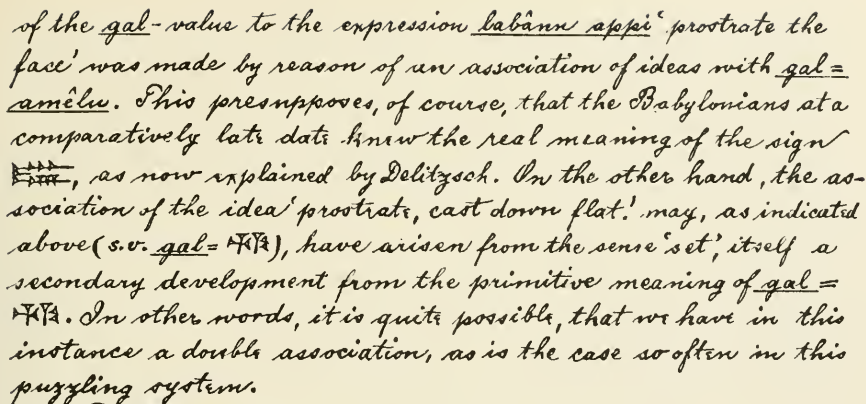 of the gal-value to the expression labânu appi ‘prostrate the
face’ was made by reason of an association of ideas with gal=
amêlu. This presupposes, of course, that the Babylonians at a
comparatively late date knew the real meaning of the sign
, as now explained by Delitzsch. On the other hand, the as-
sociation of the idea ‘prostrate, cast down flat!’ may, as indicated
above (s.v. gal= ), have arisen from the sense ‘set’, itself a
secondary development from the primitive meaning of gal=
. In other words, it is quite possible, that we have in this
instance a double association, as is the case so often in this
puzzling system.